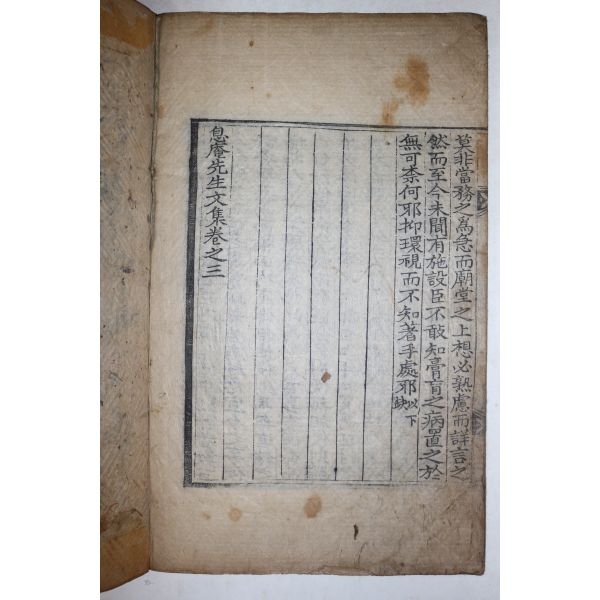 莫非當務之爲急而廟堂之上想必熟慮而詳言之
然而至今未聞有施設臣不敢知膏肓之病置之於
無可柰何邪抑環視而不知著手處邪以下缺
息庵先生文集卷之三